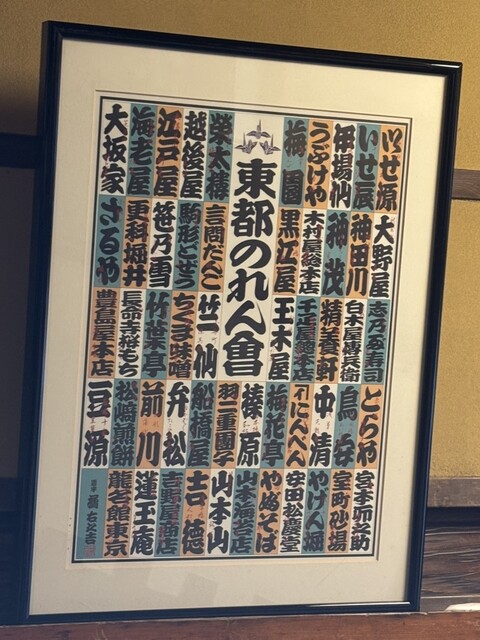 東都のれん会
いせ源
いせ辰
伊場仙
うぶけや
梅園
榮太樓
越後屋
江戸屋
海老屋
大坂家
大野屋
神田川
神茂
木村屋総本店
黒江屋
言問だんご
駒形どぜう
笹乃雪
更科堀井
さるや
志乃多寿司
白木屋傳兵衛
精養軒
千疋屋總本店
玉木屋
竺仙
ちくま味噌
竹葉亭
長命寺桜もち
豊島屋本店
とらや
鳥安
中清
にんべん
梅花亭
榛原
羽二重團子
船橋屋
弁松
前川
松﨑煎餅
豆源
宮本卯之助
室町砂場
やげん堀
安田松慶堂
やぶそば
山本海苔店
山本山
吉德
吉野屋商店
蓮玉庵
龍名館東京
橘右之吉